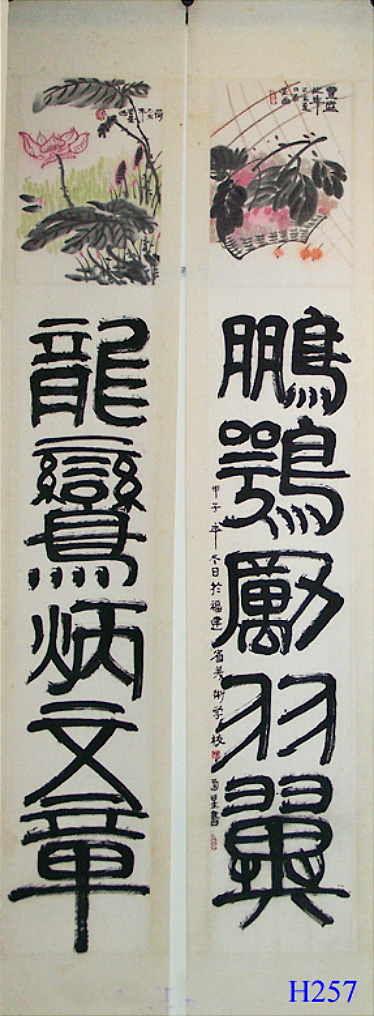 豐盛
鵬鶚勵羽翼
甲子年冬日於福建省美術學校
龍鸞炳文章
H257